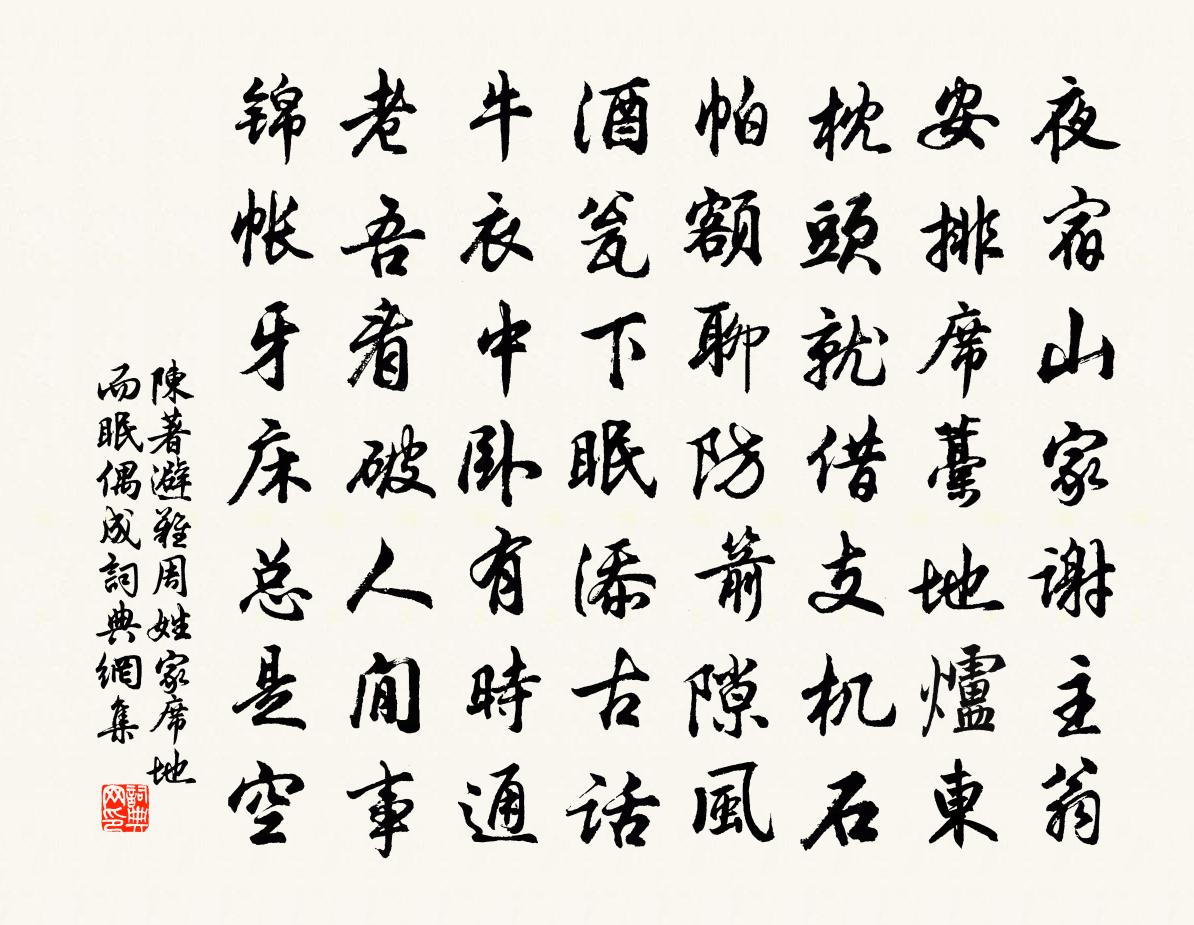 夜宿山家謝主翁
安排席藁地爐東
枕頭就借支机石
帕額聊防箭隙風
酒瓮下眠添古話
牛衣中卧有時通
老吾看破人間事
锦帐牙床总是空
陳著避難周姓家席地
而眠偶成詞典網集
詞典网印